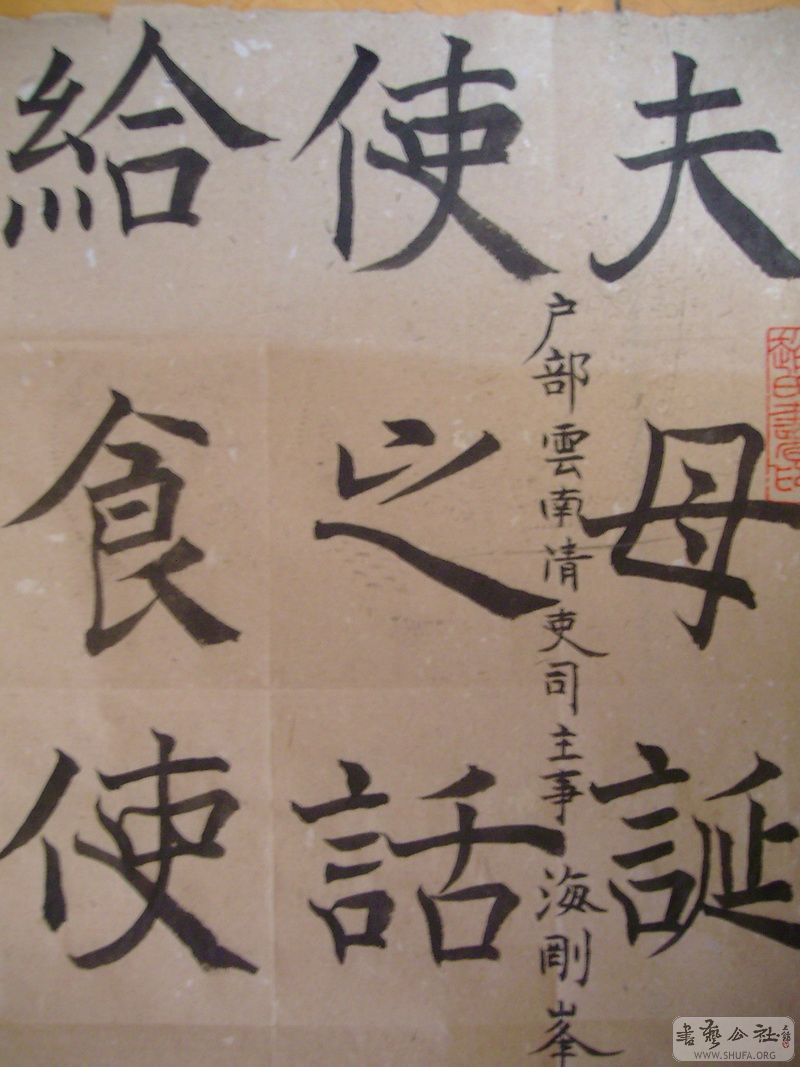 夫母誕
户部雲南清吏司主事 海剛峯
使之話
給食使
書藝公社
WWW.SHUFA.ORG